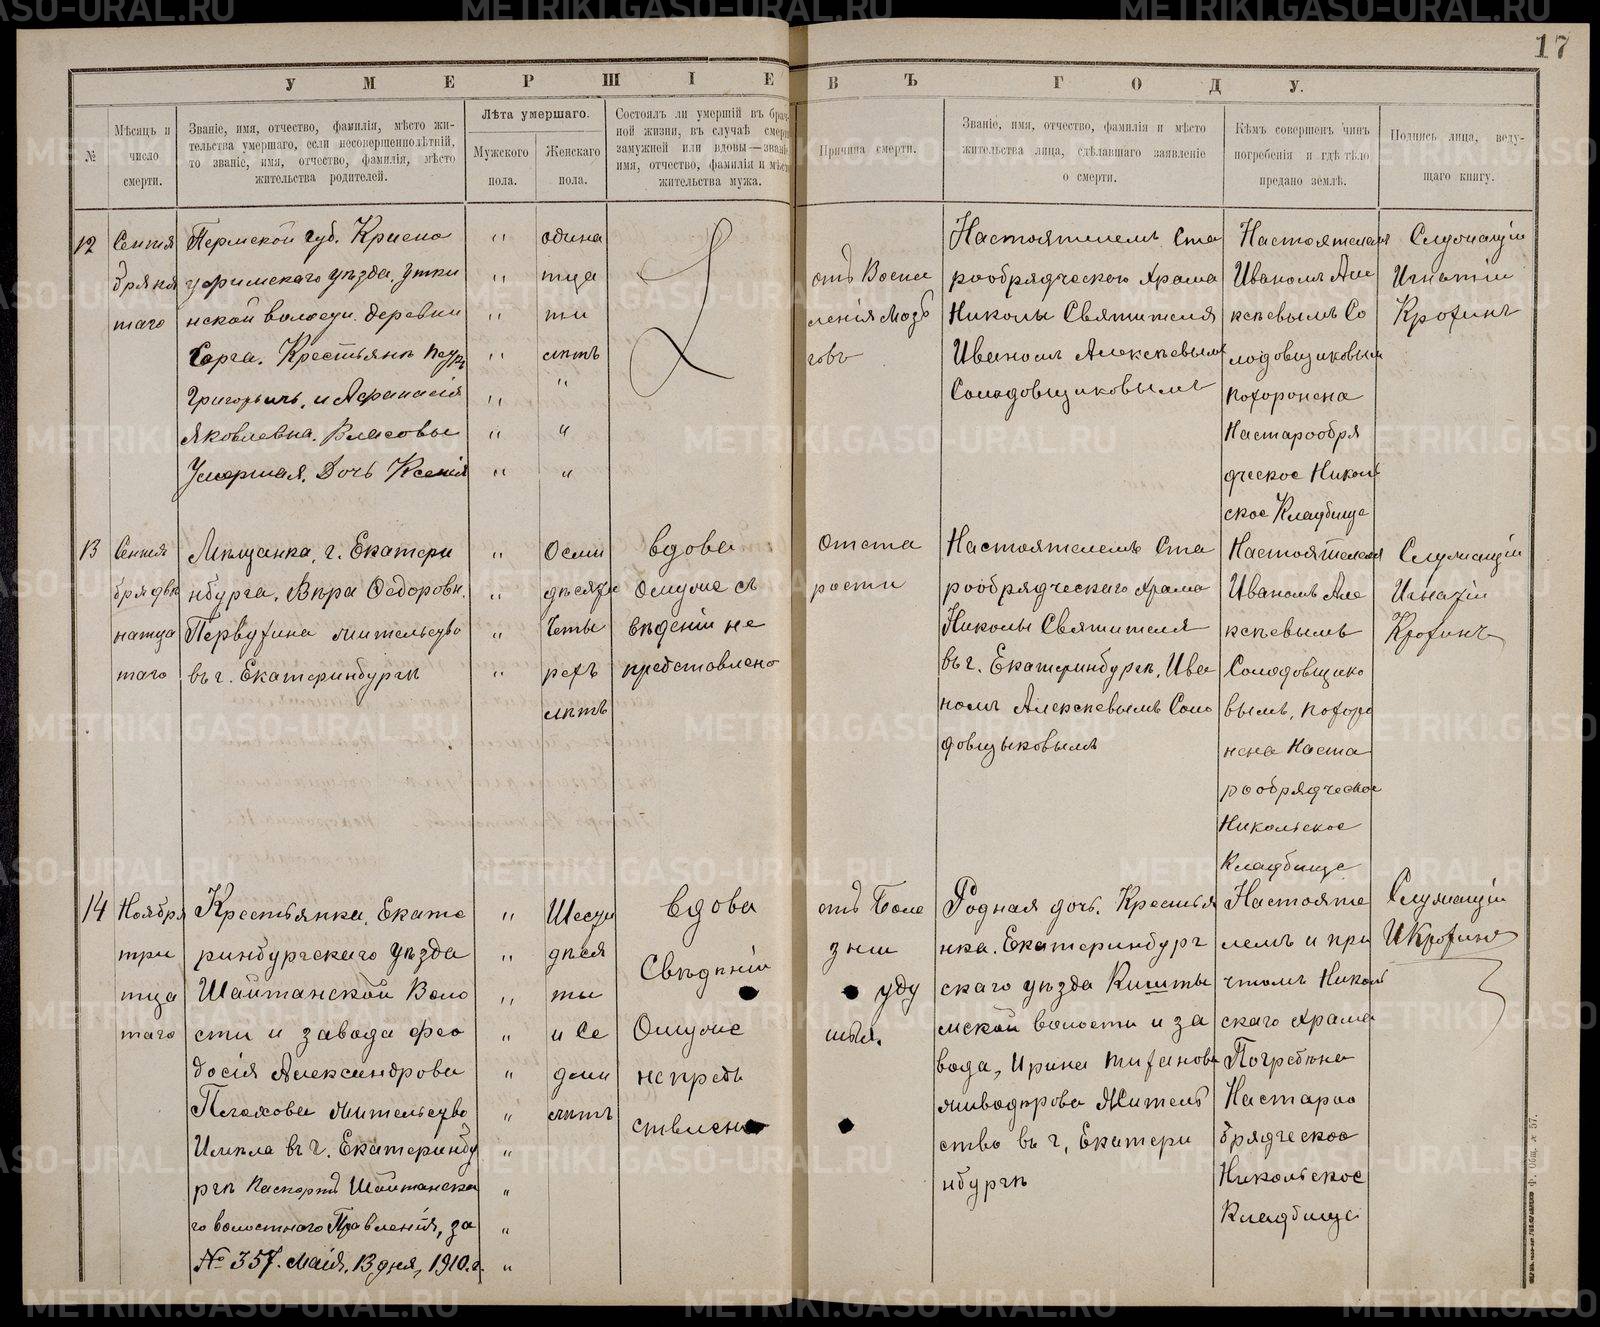 17
УМЕРШІЕ ВЪ ГОДУ.
№
Мѣсяцъ и
число
смерти.
Званіе, имя, отчество, фамилія, мѣсто жи-
тельства умершаго, если несовершеннолѣтній,
то званіе, имя, отчество, фамилія, мѣсто
жительства родителей.
Лѣта умершаго.
Мужского
пола.
Женскаго
пола.
Состоялъ ли умершій въ брач-
ной жизни, въ случаѣ смерти
замужней или вдовы—званіе,
имя, отчество, фамилія и мѣсто
жительства мужа.
Причина смерти.
Званіе, имя, отчество, фамилія и мѣсто
жительства лица, сдѣлавшаго заявленіе
о смерти.
Кѣмъ совершенъ чинъ
погребенія и гдѣ тѣло
предано землѣ.
Подпись лица, веду-
щаго книгу.
12
Сентя
бря пя
таго
Пермской губ. Красно
уфимскаго уѣзда. Утки
нской волости. деревни
Сарга. Крестьянъ Петръ
Григорьичъ, и Афанасія
Яковлевна. Власовы
Умершая. Дочь Ксенія
одина
тца
ти
лѣтъ
отъ Воспа
ленія Мозъ
говъ
Настоятелемъ Ста
рообрядческого Храма
Николы Святителя
Иваномъ Алексѣевымъ
Солодовщиковымъ
Настоятелемъ
Иваномъ Але
ксѣевымъ Со
лодовщиковым
похоронена
Настарообря
дческое Николь
ское Кладбище
Служащій
Игнатій
Крохинъ
13
Сентя
бря двѣ
натца
таго
Мѣщанка, г. Екатери
нбурга. Вѣра Федоровн.
Первухина жительство
въ г. Екатеринбургѣ
Осми
дѣсяти
Четы
рехъ
лѣтъ
вдова
Омуже св
ѣдѣніи не
представлено
отста
рости
Настоятелемъ Ста
рообрядческаго Храма
Николы Святителя
въ г. Екатеринбургѣ, Ива
номъ Алексѣевымъ Соло
довщыковымъ
Настоятелемъ
Иваномъ Але
ксѣевымъ
Солодовщико
вымъ, похоро
нена Наста
рообрядческое
Никольское
Кладбище
Служащій
Игнатій
Крохинъ
14
Ноября
три
тца
таго
Крестьянка, Екате
ринбургскаго уѣзда
Шайтанской Воло
сти и завода Фео
досія Александрова
Плохова Жительство
Имѣла въ г. Екатеринбу
ргѣ Паспортъ Шайтанска
го волостнаго Правленія, за
№ 357. Маія, 13 дня, 1910. г.
Шести
дѣся
ти
и Се
дми
лѣтъ
вдова
Свѣдѣніи
Омуже
непредъ
ствлено
отъ Боле
зни
уду
шья.
Родная дочь. Крестья
нка. Екатеринбург
скаго уѣзда Кишты
мской волости и за
вода, Ирина Тиханова
Живодерова Житель
ство въ г. Екатери
нбургѣ
Настояте
лемъ и при
чтомъ Николь
скаго Храма
Погребена
Настароо
брядческое
Никольское
Кладбище
Служащій
И Крохинъ
METRIKI.GASO-URAL.RU